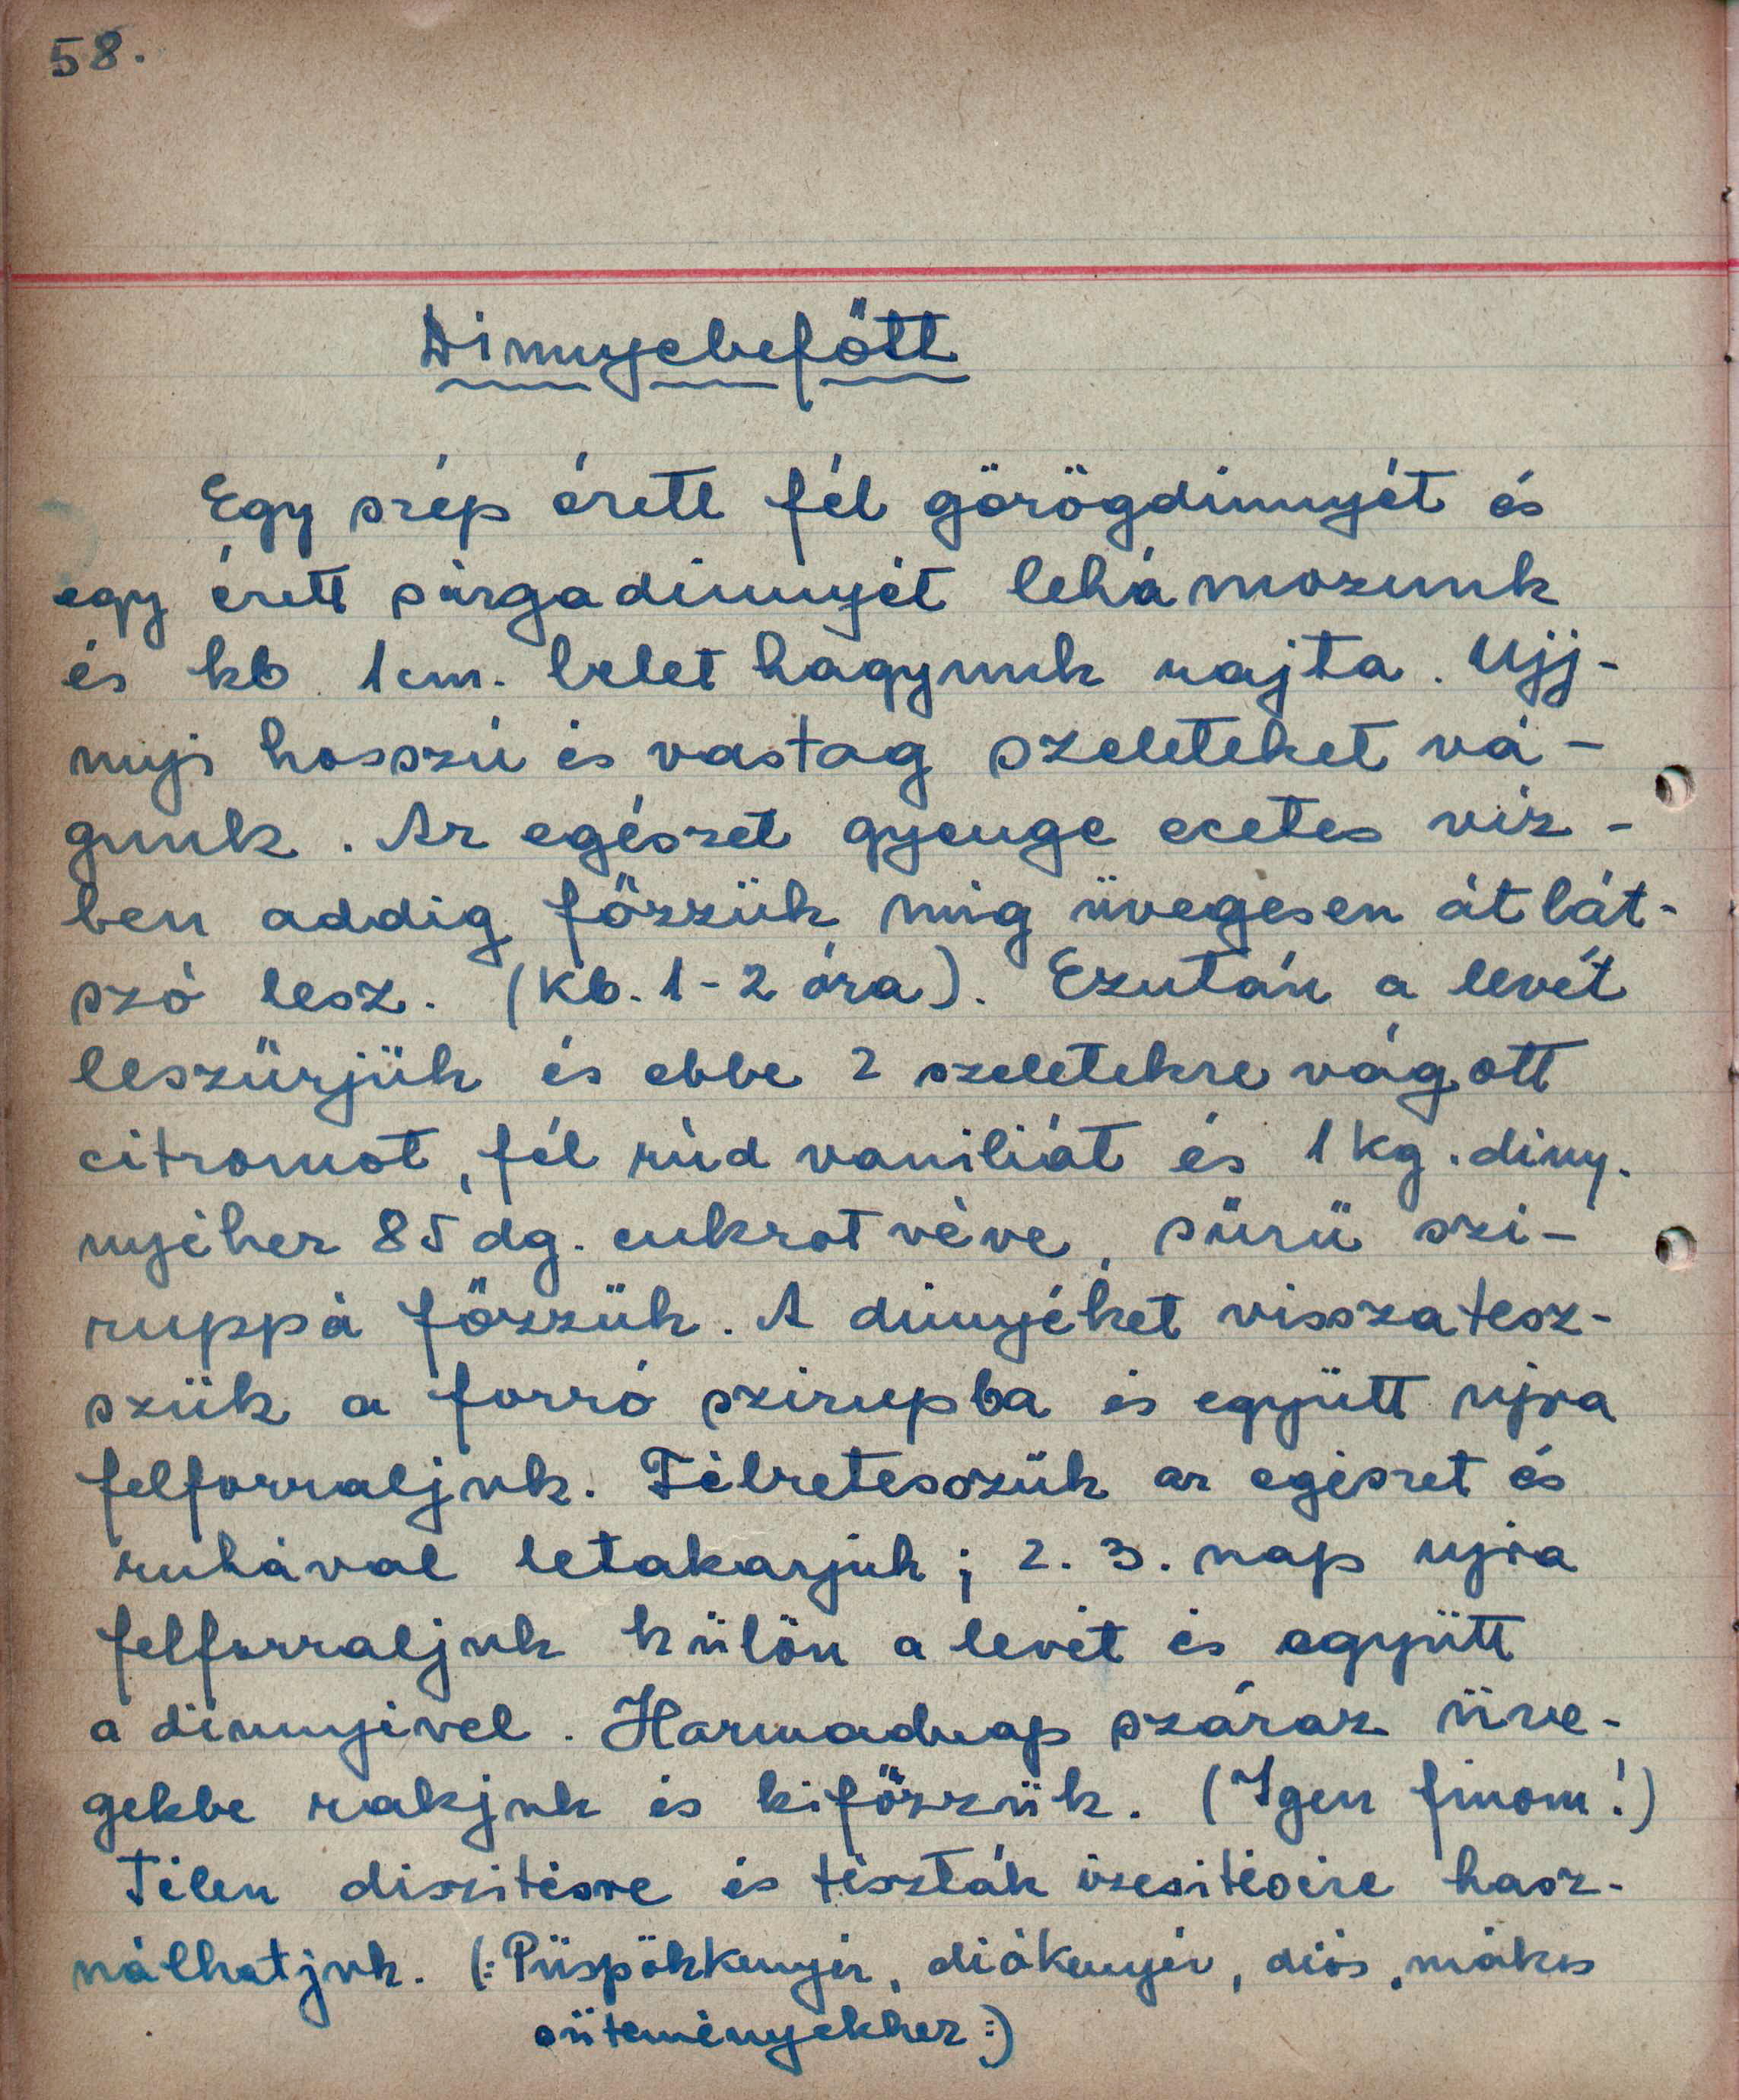 58.
Dinnyebefőtt
Egy szép érett fél görögdinnyét és
egy érett sárgadinnyét lehámozunk
és kb. 1 cm. belet hagyunk rajta. Ujj-
nyi hosszú és vastag szeleteket vá-
gunk. Az egészet gyenge ecetes víz-
ben addig főzzük míg üvegesen átlát-
szó lesz. (Kb. 1-2 óra). Ezután a levét
leszűrjük és ebbe 2 szeletekre vágott
citromot, fél rúd vaniliát és 1 kg. diny.
nyéhez 85 dg. cukrot véve, sűrű szi-
ruppá főzzük. A dinnyéket visszatesz-
szük a forró szirupba és együtt ujra
felforraljuk. Félretesszük az egészet és
ruhával letakarjuk; 2. 3. nap ujra
felforraljuk külön a levét és együtt
a dinnyével. Harmadnap száraz üve-
gekbe rakjuk és kifőzzük. (Igen finom!)
Télen diszitésre és tészták izesitésére hasz-
nálhatjuk. (: Püspökkenyér, diókenyér, diós, mákos
süteményekhez :)